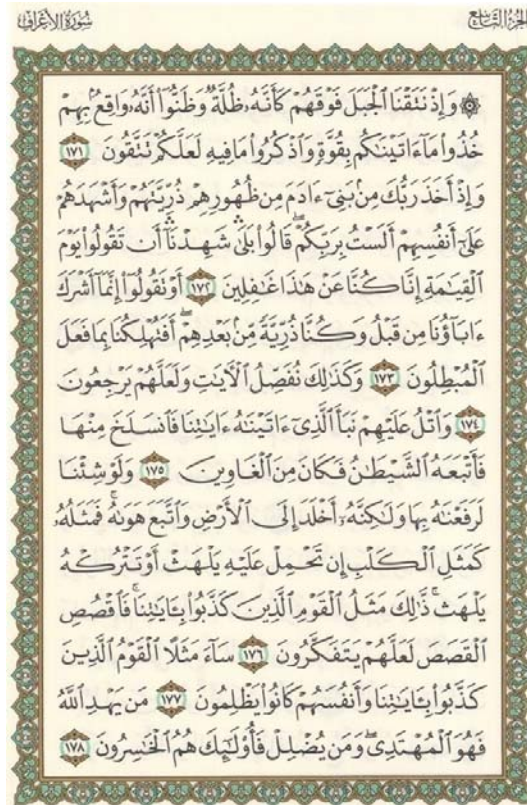 سُورَةُ الأَعۡرَافِ
الجُزءُ التَّاسِعُ
۞ وَإِذۡ نَتَقۡنَا ٱلۡجَبَلَ فَوۡقَهُمۡ كَأَنَّهُۥ ظُلَّةٌ وَظَنُّوٓاْ أَنَّهُۥ وَاقِعُۢ بِهِمۡ
خُذُواْ مَآ ءَاتَيۡنَٰكُم بِقُوَّةٍ وَٱذۡكُرُواْ مَا فِيهِ لَعَلَّكُمۡ تَتَّقُونَ ١٧١
وَإِذۡ أَخَذَ رَبُّكَ مِنۢ بَنِيٓ ءَادَمَ مِن ظُهُورِهِمۡ ذُرِّيَّتَهُمۡ وَأَشۡهَدَهُمۡ
عَلَىٰٓ أَنفُسِهِمۡ أَلَسۡتُ بِرَبِّكُمۡۖ قَالُواْ بَلَىٰۛ شَهِدۡنَآۛ أَن تَقُولُواْ يَوۡمَ
ٱلۡقِيَٰمَةِ إِنَّا كُنَّا عَنۡ هَٰذَا غَٰفِلِينَ ١٧٢ أَوۡ تَقُولُوٓاْ إِنَّمَآ أَشۡرَكَ
ءَابَآؤُنَا مِن قَبۡلُ وَكُنَّا ذُرِّيَّةً مِّنۢ بَعۡدِهِمۡۖ أَفَتُهۡلِكُنَا بِمَا فَعَلَ
ٱلۡمُبۡطِلُونَ ١٧٣ وَكَذَٰلِكَ نُفَصِّلُ ٱلۡأٓيَٰتِ وَلَعَلَّهُمۡ يَرۡجِعُونَ
١٧٤ وَٱتۡلُ عَلَيۡهِمۡ نَبَأَ ٱلَّذِيٓ ءَاتَيۡنَٰهُ ءَايَٰتِنَا فَٱنسَلَخَ مِنۡهَا
فَأَتۡبَعَهُ ٱلشَّيۡطَٰنُ فَكَانَ مِنَ ٱلۡغَاوِينَ ١٧٥ وَلَوۡ شِئۡنَا
لَرَفَعۡنَٰهُ بِهَا وَلَٰكِنَّهُۥٓ أَخۡلَدَ إِلَى ٱلۡأَرۡضِ وَٱتَّبَعَ هَوَىٰهُۚ فَمَثَلُهُۥ
كَمَثَلِ ٱلۡكَلۡبِ إِن تَحۡمِلۡ عَلَيۡهِ يَلۡهَثۡ أَوۡ تَتۡرُكۡهُ
يَلۡهَثۚ ذَّٰلِكَ مَثَلُ ٱلۡقَوۡمِ ٱلَّذِينَ كَذَّبُواْ بِـَٔايَٰتِنَاۚ فَٱقۡصُصِ
ٱلۡقَصَصَ لَعَلَّهُمۡ يَتَفَكَّرُونَ ١٧٦ سَآءَ مَثَلًا ٱلۡقَوۡمُ ٱلَّذِينَ
كَذَّبُواْ بِـَٔايَٰتِنَا وَأَنفُسَهُمۡ كَانُواْ يَظۡلِمُونَ ١٧٧ مَن يَهۡدِ ٱللَّهُ
فَهُوَ ٱلۡمُهۡتَدِيۖ وَمَن يُضۡلِلۡ فَأُوْلَٰٓئِكَ هُمُ ٱلۡخَٰسِرُونَ ١٧٨